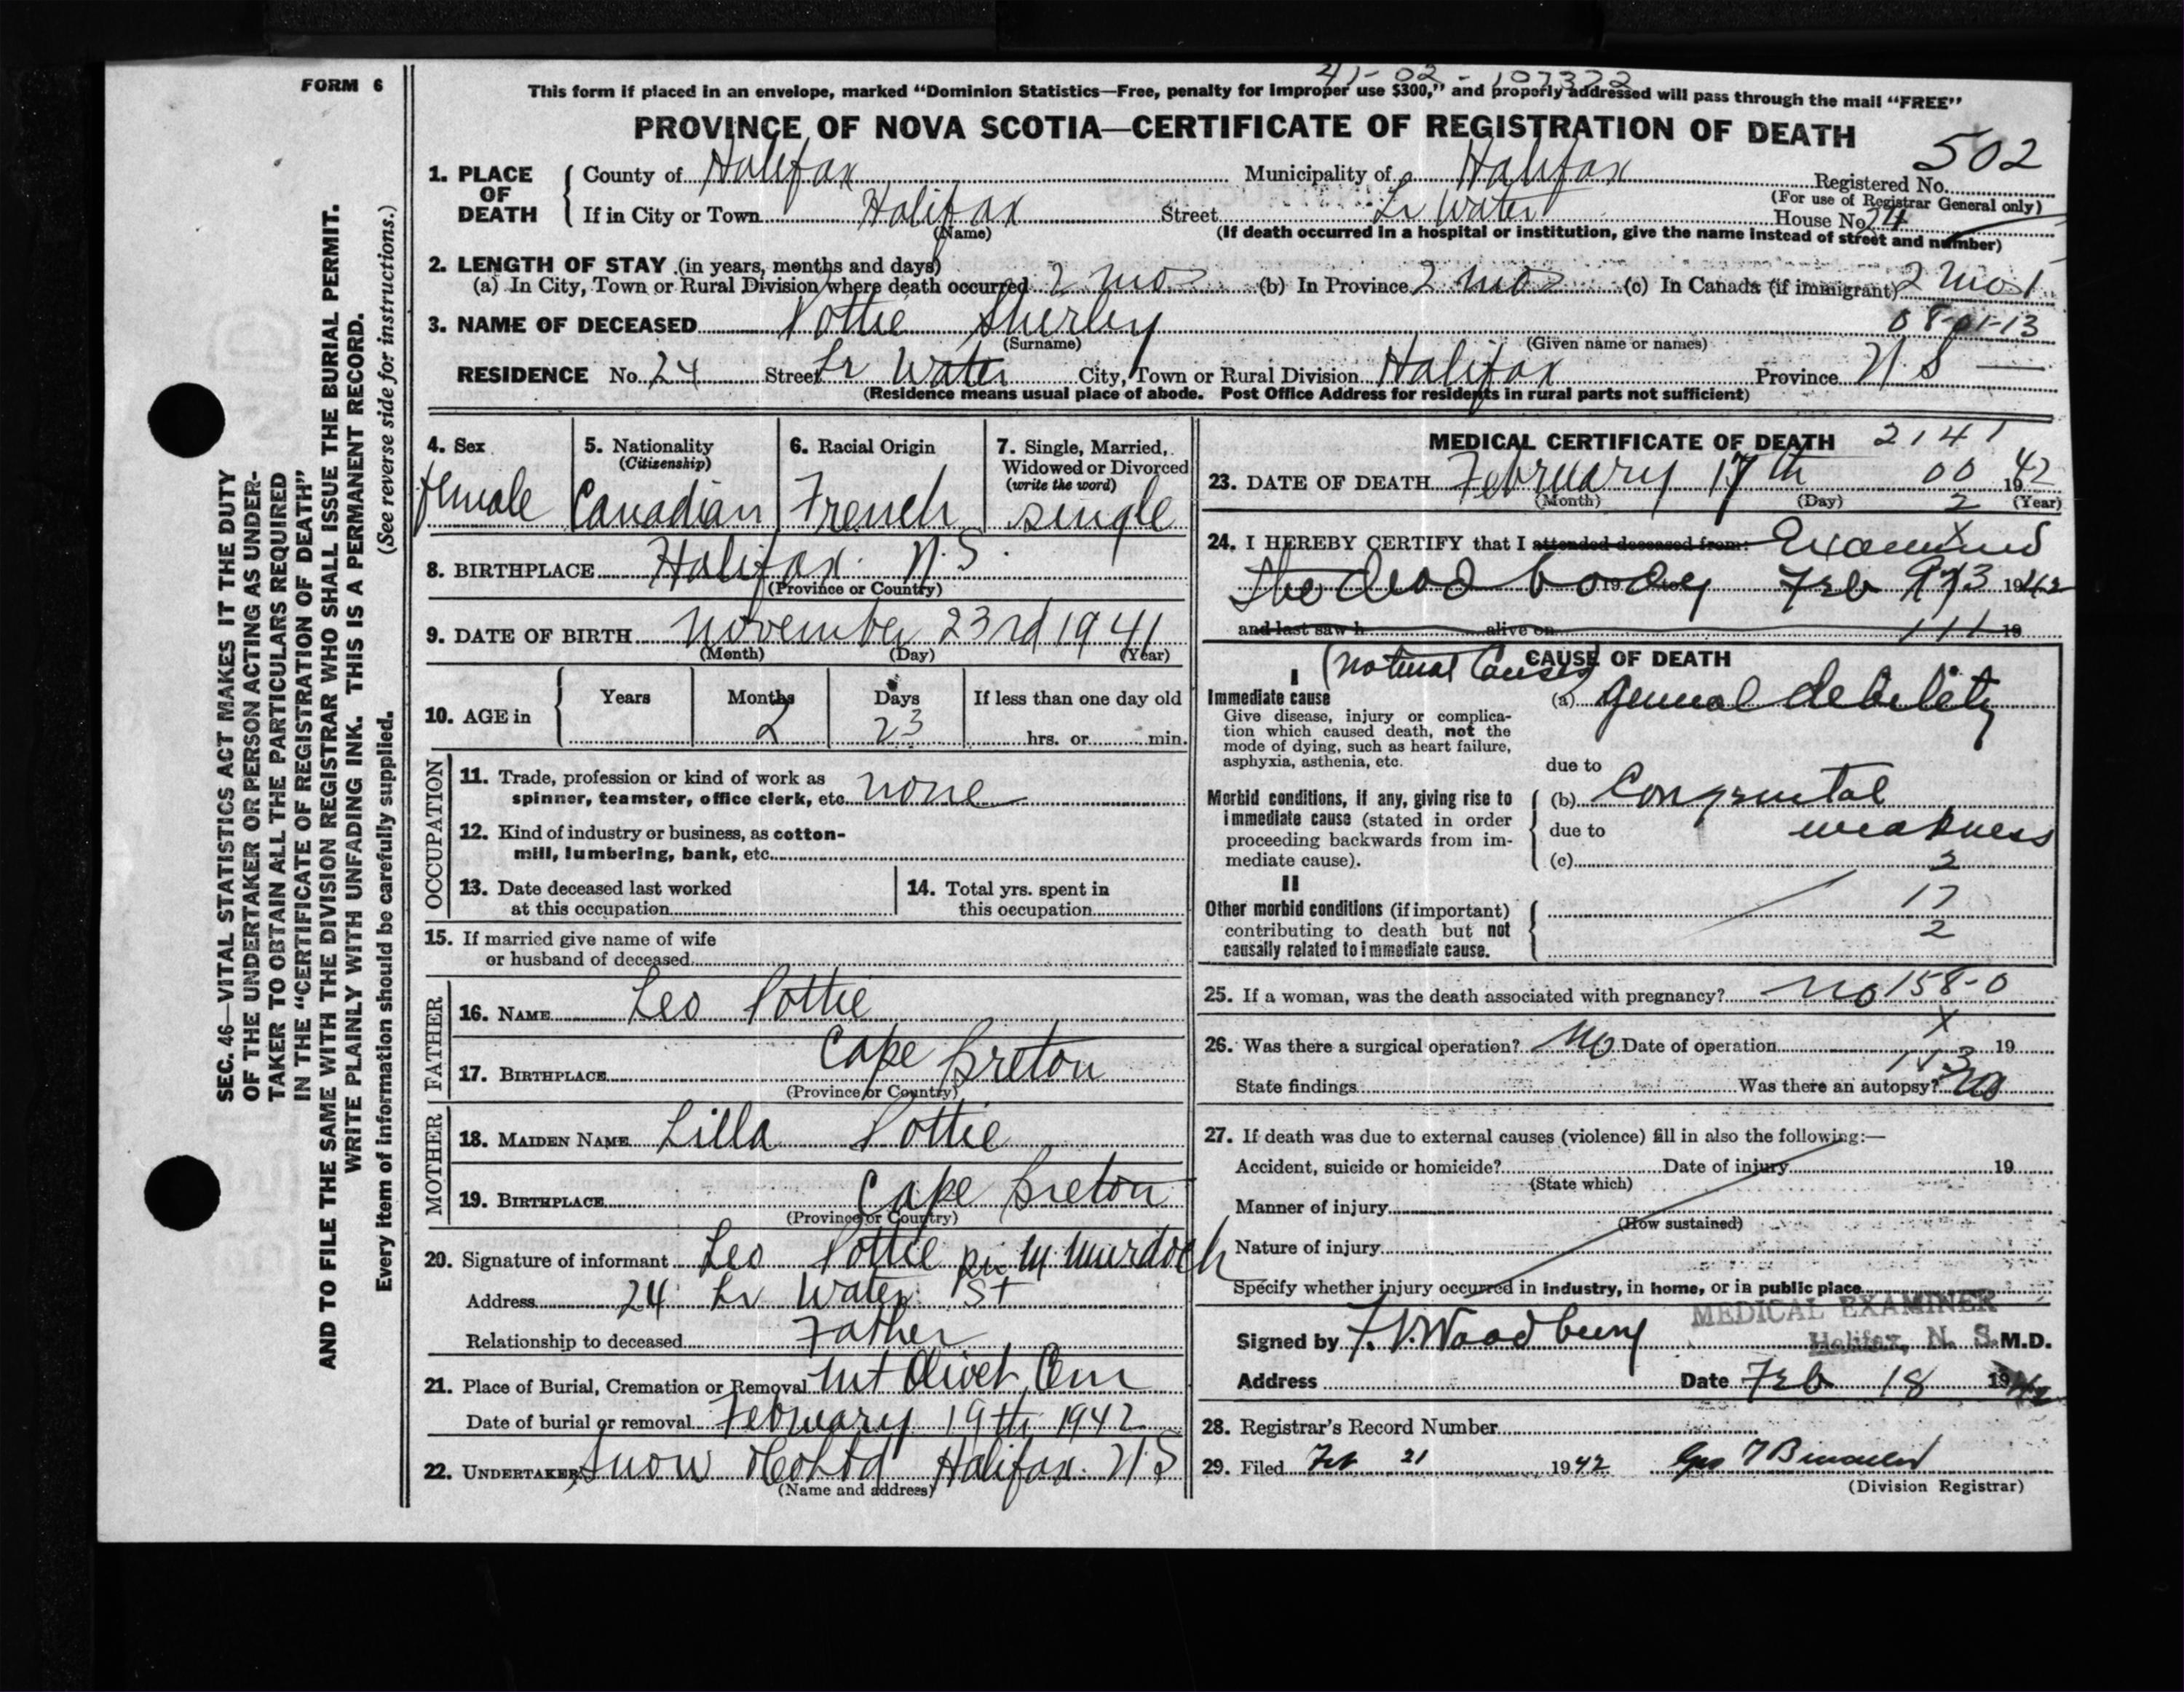 FORM 6
41-02-107372
This form if placed in an envelope, marked "Dominion Statistics—Free, penalty for improper use $300," and properly addressed will pass through the mail "FREE"
PROVINCE OF NOVA SCOTIA—CERTIFICATE OF REGISTRATION OF DEATH
502
1. PLACE OF DEATH County of Halifax Municipality of Halifax Registered No.
(For use of Registrar General only)
If in City or Town Halifax Street Lr Water House No. 24
(Name) (If death occurred in a hospital or institution, give the name instead of street and number)
2. LENGTH OF STAY (in years, months and days)
(a) In City, Town or Rural Division where death occurred 2 mos (b) In Province 2 mos (c) In Canada (if immigrant) 2 mos
3. NAME OF DECEASED Pottie Sherley 08-01-13
(Surname) (Given name or names)
RESIDENCE No. 24 Street Lr Water City, Town or Rural Division Halifax Province N S
(Residence means usual place of abode. Post Office Address for residents in rural parts not sufficient)
SEC. 46—VITAL STATISTICS ACT MAKES IT THE DUTY
OF THE UNDERTAKER OR PERSON ACTING AS UNDER-
TAKER TO OBTAIN ALL THE PARTICULARS REQUIRED
IN THE "CERTIFICATE OF REGISTRATION OF DEATH"
AND TO FILE THE SAME WITH THE DIVISION REGISTRAR WHO SHALL ISSUE THE BURIAL PERMIT.
WRITE PLAINLY WITH UNFADING INK. THIS IS A PERMANENT RECORD.
Every item of information should be carefully supplied. (See reverse side for instructions.)
4. Sex female
5. Nationality (Citizenship) Canadian
6. Racial Origin French
7. Single, Married, Widowed or Divorced (write the word) single
8. BIRTHPLACE Halifax N.S.
(Province or Country)
9. DATE OF BIRTH November 23rd 1941
(Month) (Day) (Year)
10. AGE in Years Months 2 Days 23 If less than one day old
hrs. or min.
OCCUPATION
11. Trade, profession or kind of work as
spinner, teamster, office clerk, etc. none
12. Kind of industry or business, as cotton-
mill, lumbering, bank, etc.
13. Date deceased last worked
at this occupation
14. Total yrs. spent in
this occupation
15. If married give name of wife
or husband of deceased
FATHER
16. NAME Leo Pottie
17. BIRTHPLACE Cape Breton
(Province or Country)
MOTHER
18. MAIDEN NAME Lilla Pottie
19. BIRTHPLACE Cape Breton
(Province or Country)
20. Signature of informant Leo Pottie per M. Murdoch
Address 24 Lr Water St
Relationship to deceased Father
21. Place of Burial, Cremation or Removal Mt Olivet Cem
Date of burial or removal February 19th 1942
22. UNDERTAKER Snow & Co Ltd Halifax N S
(Name and address)
MEDICAL CERTIFICATE OF DEATH 2141
23. DATE OF DEATH February 17th 00 1942
(Month) (Day) 2 (Year)
24. I HEREBY CERTIFY that I attended deceased from: Examined
the dead body 19 to Feb 1942
and last saw h alive on 19
CAUSE OF DEATH
(Natural Causes)
I
Immediate cause
Give disease, injury or complica-
tion which caused death, not the
mode of dying, such as heart failure,
asphyxia, asthenia, etc.
(a) General debility
due to
Morbid conditions, if any, giving rise to
immediate cause (stated in order
proceeding backwards from im-
mediate cause).
(b) Congenital
due to weakness
(c) 2
II
17
2
Other morbid conditions (if important)
contributing to death but not
causally related to immediate cause.
25. If a woman, was the death associated with pregnancy? no 158-0
26. Was there a surgical operation? No Date of operation 19
State findings Was there an autopsy? no
27. If death was due to external causes (violence) fill in also the following:—
Accident, suicide or homicide? Date of injury 19
(State which)
Manner of injury
(How sustained)
Nature of injury
Specify whether injury occurred in industry, in home, or in public place
MEDICAL EXAMINER
Signed by F. V. Woodbury Halifax, N. S. M.D.
Address Date Feb 18 1942
28. Registrar's Record Number
29. Filed Feb 21 1942
(Division Registrar)